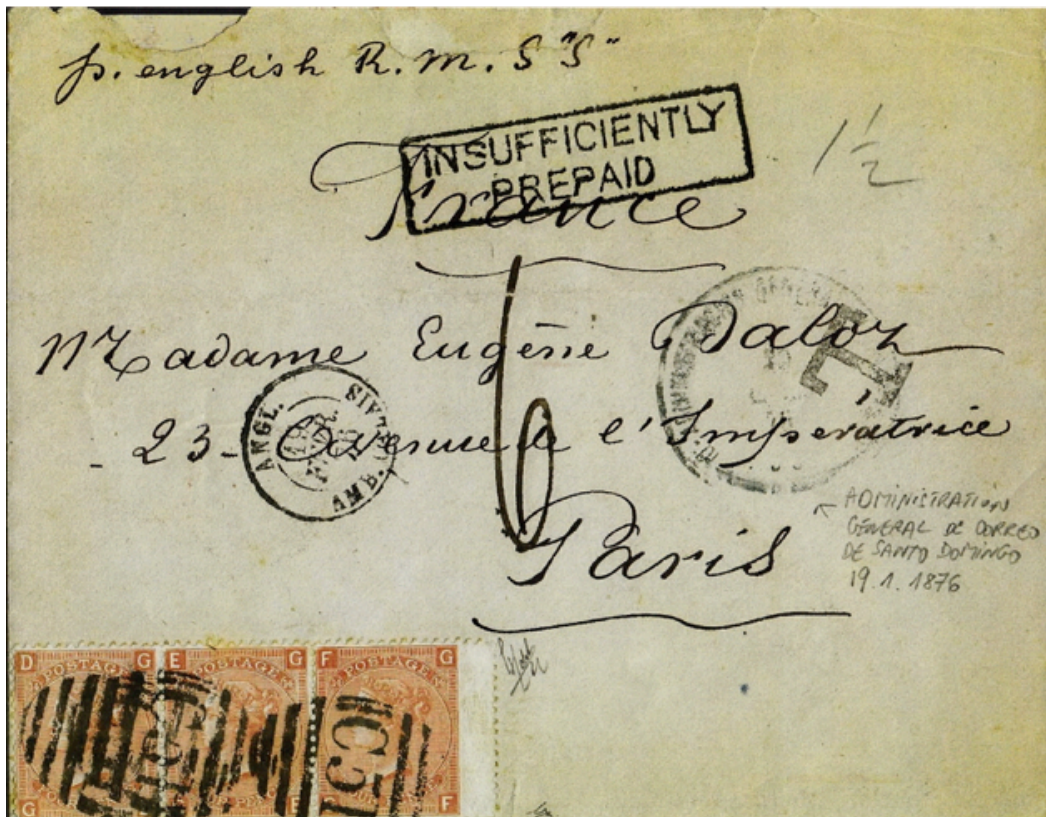 p. english R. M. S "S"
INSUFFICIENTLY
PREPAID
1½
France
6
Madame Eugène Daloz
ANGL. AMB.
18 FEVR
GENERAL
T
- 23 - Avenue de l'Impératrice
Paris
ADMINISTRATION
GENERAL DE CORREO
DE SANTO DOMINGO
19.1.1876
D POSTAGE G E POSTAGE G F POSTAGE G
C51
G E F